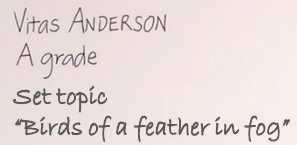 Vitas ANDERSON
A grade
Set topic
"Birds of a feather in fog"